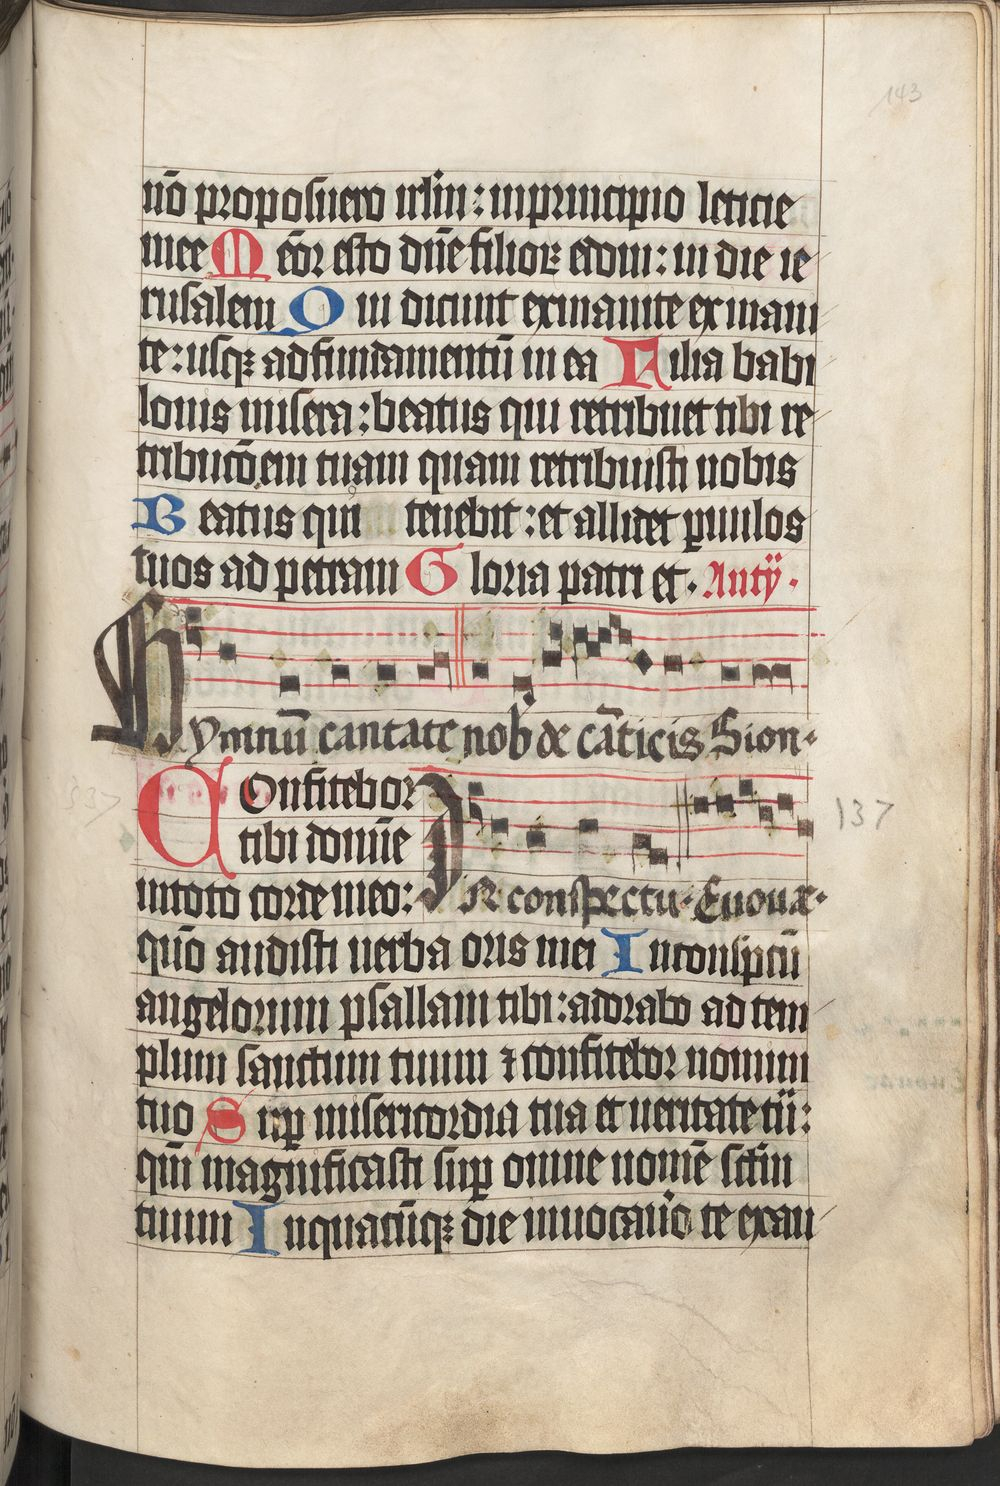 143
nō proposuero irlm̄: in principio leticie
mee Memor esto dn̄e filioꝝ edom: in die ie
rusalem Qui dicunt exinanite exinani
te: usqꝫ ad fundamentū in ea Filia babi
lonis misera: beatus qui retribuet tibi re
tribucōem tuam quam retribuisti nobis
Beatus qui tenebit: et allidet ꝑuulos
tuos ad petram Gloria patri et. Antÿ.
Hymnū cantate nob̄ de cāticis Sion.
COnfitebor
tibi domīe
137
in toto corde meo: In conspectu. Euouae.
qm̄ audisti uerba oris mei In conspc̄tū
angelorum psallam tibi: adorabo ad tem
plum sanctum tuum ⁊ confitebor nomini
tuo Suꝑ misericordia tua et ueritate tū:
qm̄ magnificasti suꝑ omne nomē sc̄m
tuum In quacūqꝫ die inuocauo te exau